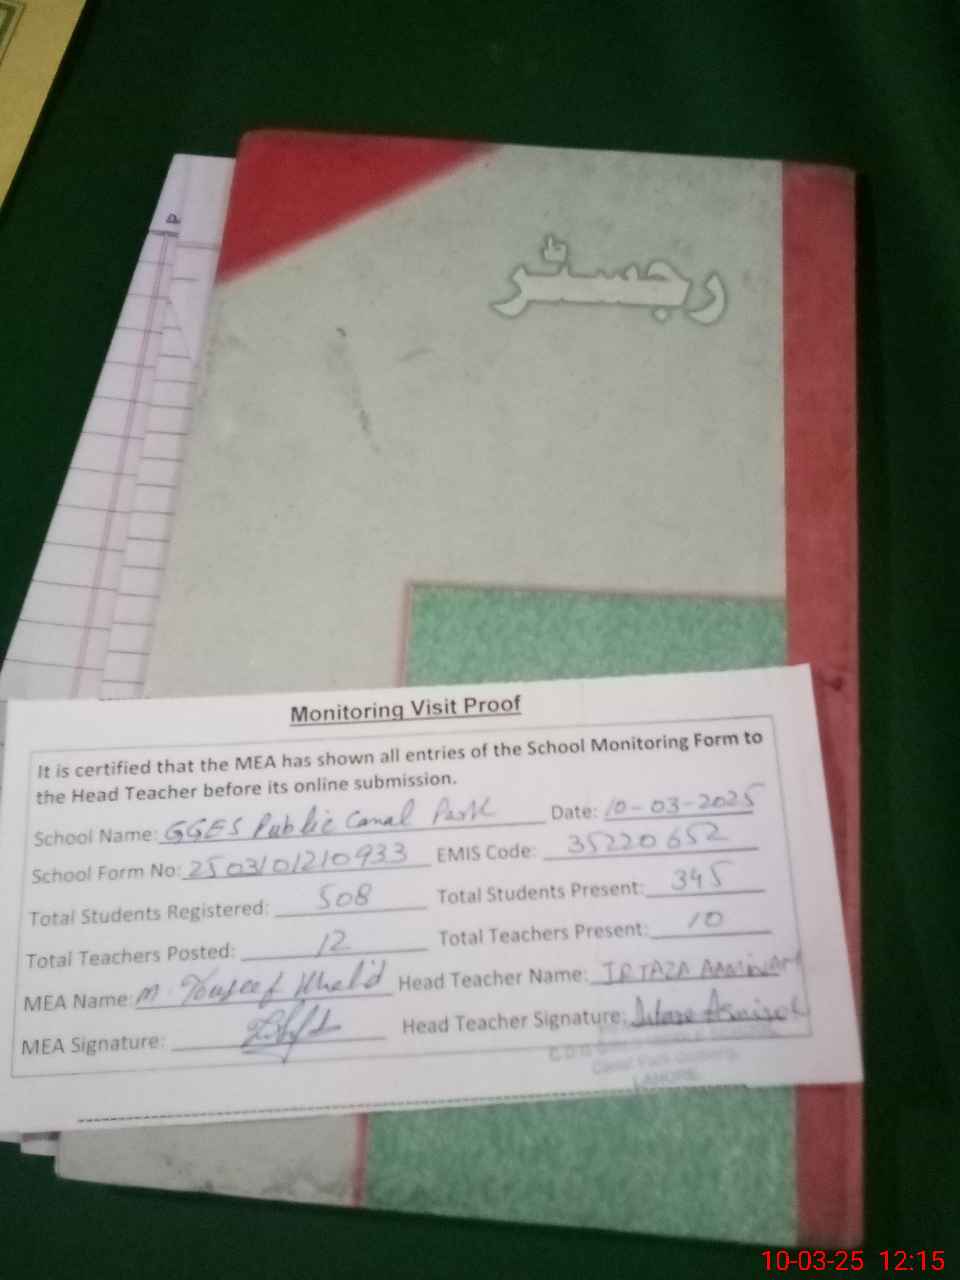 رجسٹر
Monitoring Visit Proof
It is certified that the MEA has shown all entries of the School Monitoring Form to
the Head Teacher before its online submission.
School Name: GGES Public Canal Park Date: 10-03-2025
School Form No: 2503101210933 EMIS Code: 35220652
Total Students Registered: 508 Total Students Present: 345
Total Teachers Posted: 12 Total Teachers Present: 10
MEA Name: M. Touseef Khalid Head Teacher Name: IRTAZA
MEA Signature: Head Teacher Signature:
LAHORE
10-03-25 12:15